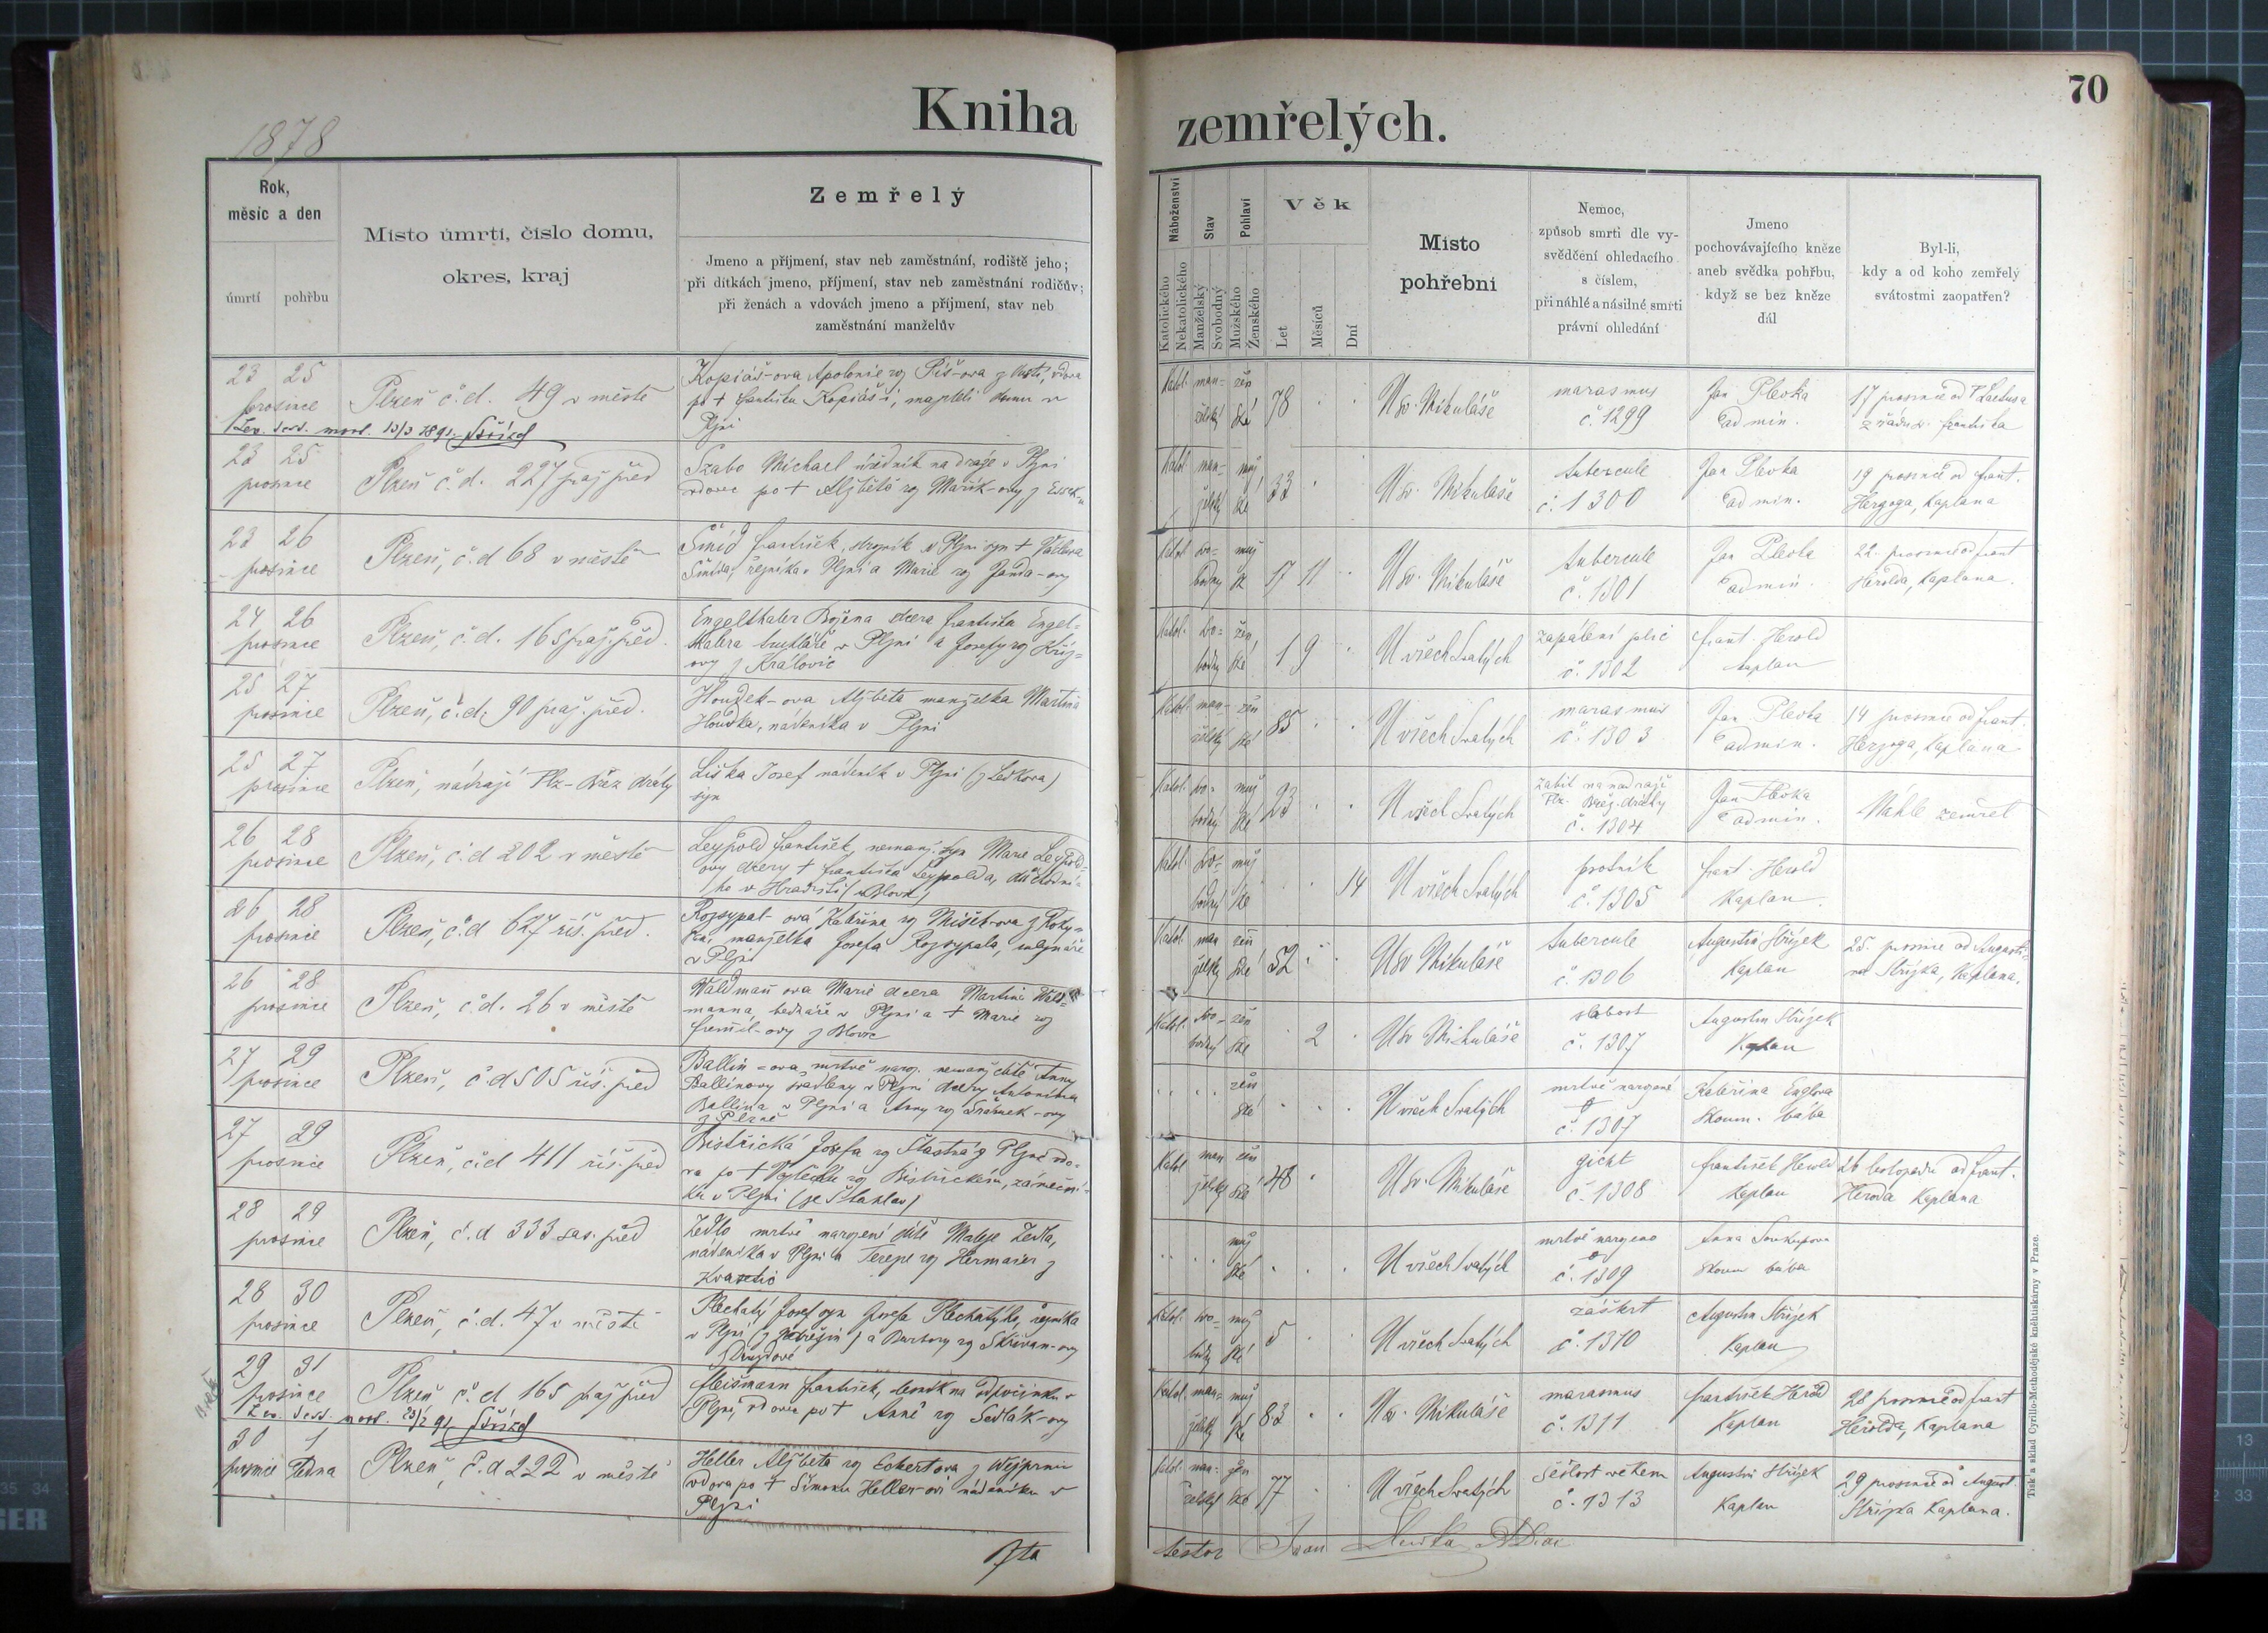 70
Kniha
zemřelých.
1878
Rok,
měsíc a den
úmrtí pohřbu
Místo úmrtí, číslo domu,
okres, kraj
Zemřelý
Jmeno a příjmení, stav neb zaměstnání, rodiště jeho;
při dítkách jmeno, příjmení, stav neb zaměstnání rodičův;
při ženách a vdovách jmeno a příjmení, stav neb
zaměstnání manželův
Náboženství
Katolického
Nekatolického
Stav
Manželský
Svobodný
Pohlaví
Mužského
Ženského
Věk
Let
Měsíců
Dní
Místo
pohřební
Nemoc,
způsob smrti dle vy-
svědčení ohledacího
s číslem,
při náhlé a násilné smrti
právní ohledání
Jmeno
pochovávajícího kněze
aneb svědka pohřbu,
když se bez kněze
dál
Byl-li,
kdy a od koho zemřelý
svátostmi zaopatřen?
23 25
prosince
Plzeň č. d. 49 v městě
Kopiáš-ova Apolonie
vdova
po + Františku Kopiáši, majiteli domu v
Plzni
Katol. man- žen
želský ské 78
U sv. Mikuláše
marasmus
č. 1299
Jan Plevka
admin.
17 prosince od
z řádu sv. Františka
23 25
prosince
Plzeň č. d. 227 praž před
Szabo Michael úředník na dráze v Plzni
vdovec po + Alžbětě roz Mařík-ovy z
Katol. man- muž
želský ské 33
U sv. Mikuláše
tubercule
č. 1300
Jan Plevka
admin.
19 prosince od Frant.
Herzoga, Kaplana
23 26
prosince
Plzeň, č. d 68 v městě
Šmíd František, strojník v Plzni syn + Václava
Šmída, řezníka v Plzni a Marie roz Janda-ovy
Katol. svo- muž
bodný sk 17 11
U sv. Mikuláše
tubercule
č. 1301
Jan Plevka
admin.
22. prosince od Frant
Herolda, Kaplana.
24 26
prosince
Plzeň, č. d. 165 praž. před.
Engelthaler Božena dcera Františka Engel-
thalera truhláře v Plzni a Josefy roz Kříž-
ovy z Královic
Katol. svo- žen
bodný ské 1 9
U všech Svatých
zapálení plic
č. 1302
Frant. Herold
kaplan
25 27
prosince
Plzeň, č. d. 90 praž. před.
Houdek-ova Alžběta manželka Martina
Houdka, nádeníka v Plzni
Katol. man- žen
želský ské 85
U všech Svatých
marasmus
č. 1303
Jan Plevka
admin.
14 prosince od Frant.
Herzoga, Kaplana
25 27
prosince
Plzeň, nádraží Plz-Břez dráhy
Liška Josef nádeník v Plzni (z Ledkova)
syn
Katol. svo- muž
bodný ské 23
U všech Svatých
zabit na nádraží
Plz. Břez. dráhy
č. 1304
Jan Plevka
admin.
Náhle zemřel
26 28
prosince
Plzeň, č. d 202 v městě
Leypold František, nemanž. syn Marie Leypold-
ovy dcery + Františka Leypolda, důchodní-
ho v Hradišti (u Blovic)
Katol. svo- muž
bodný ské 14
U všech Svatých
psotník
č. 1305
Frant. Herold
Kaplan.
26 28
prosince
Plzeň, č. d 627 říš. před.
Rozsypal-ová Kateřina roz
z Roky-
can, manželka Josefa Rozsypala, mlynáře
v Plzni
Katol. man žen
želský ské 52
U sv Mikuláše
tubercule
č. 1306
Augustin Střízek
Kaplan
25. prosince od Augusti-
na Střízka, Kaplana.
26 28
prosince
Plzeň, č. d. 26 v městě
Waldmann ova Marie dcera Martina Wald-
manna, bednáře v Plzni a + Marie roz
z Blovic
Katol. svo- žen
bodný ské 2
U sv Mikuláše
slabost
č. 1307
Augustin Střízek
Kaplan
27 29
prosince
Plzeň, č. d 505 říš. před
Ballin-ova mrtvě naroz. nemanž. dítě Anny
Ballinovy švadleny v Plzni dcery Antonína
Ballina v Plzni a Anny roz
z Plzně
žen
ské
U všech Svatých
mrtvě narozené
č. 1307
Kateřina Englova
zkoum. bába
27 29
prosince
Plzeň, č. d 411 říš. před
Bistřická Josefa roz Šťastná z Plzně vdo-
va po + Vojtěchu
Bistřickém, zámeční-
ku v Plzni (ze Šťáhlav)
Katol man žen
želský ské 48
U sv. Mikuláše
gicht
č. 1308
František Herold
Kaplan
26 listopadu od Frant.
Herolda Kaplana
28 29
prosince
Plzeň, č. d 333 sas. před
Zedlo mrtvě narozené dítě Mateje Zedla,
nádeníka v Plzni a Terezie roz Hermaier z
muž
ské
U všech Svatých
mrtvě narozeno
č. 1309
Anna Soukupova
zkoum bába
28 30
prosince
Plzeň, č. d. 47 v městě
Plechatý Josef syn Josefa Plechatýho, řezníka
v Plzni
a Barbory roz Skřivan-ovy
Katol. svo- muž
bodný ské 5
U všech Svatých
záškrt
č. 1310
Augustin Střízek
Kaplan
29 31
prosince
Plzeň č. d 165 praž před
František,
Plzni, vdovec po + Anně roz Sedlák-ovy
Katol. man- muž
želský ské 83
U sv. Mikuláše
marasmus
č. 1311
František Herold
Kaplan
28 prosince od Frant
Herolda, Kaplana
30 1
prosince Ledna
Plzeň, č. d 222 v městě
Heller Alžběta roz Eckertova z Wejprnic
vdova po + Šimonu Heller-ovi nádeníku v
Plzni
Katol. man- žen
želský ské 77
U všech Svatých
Sešlost věkem
č. 1313
Augustin Střízek
Kaplan
29 prosince od August.
Střízka Kaplana.
Tisk a sklad Cyrillo-Methodějské knihtiskárny v Praze.